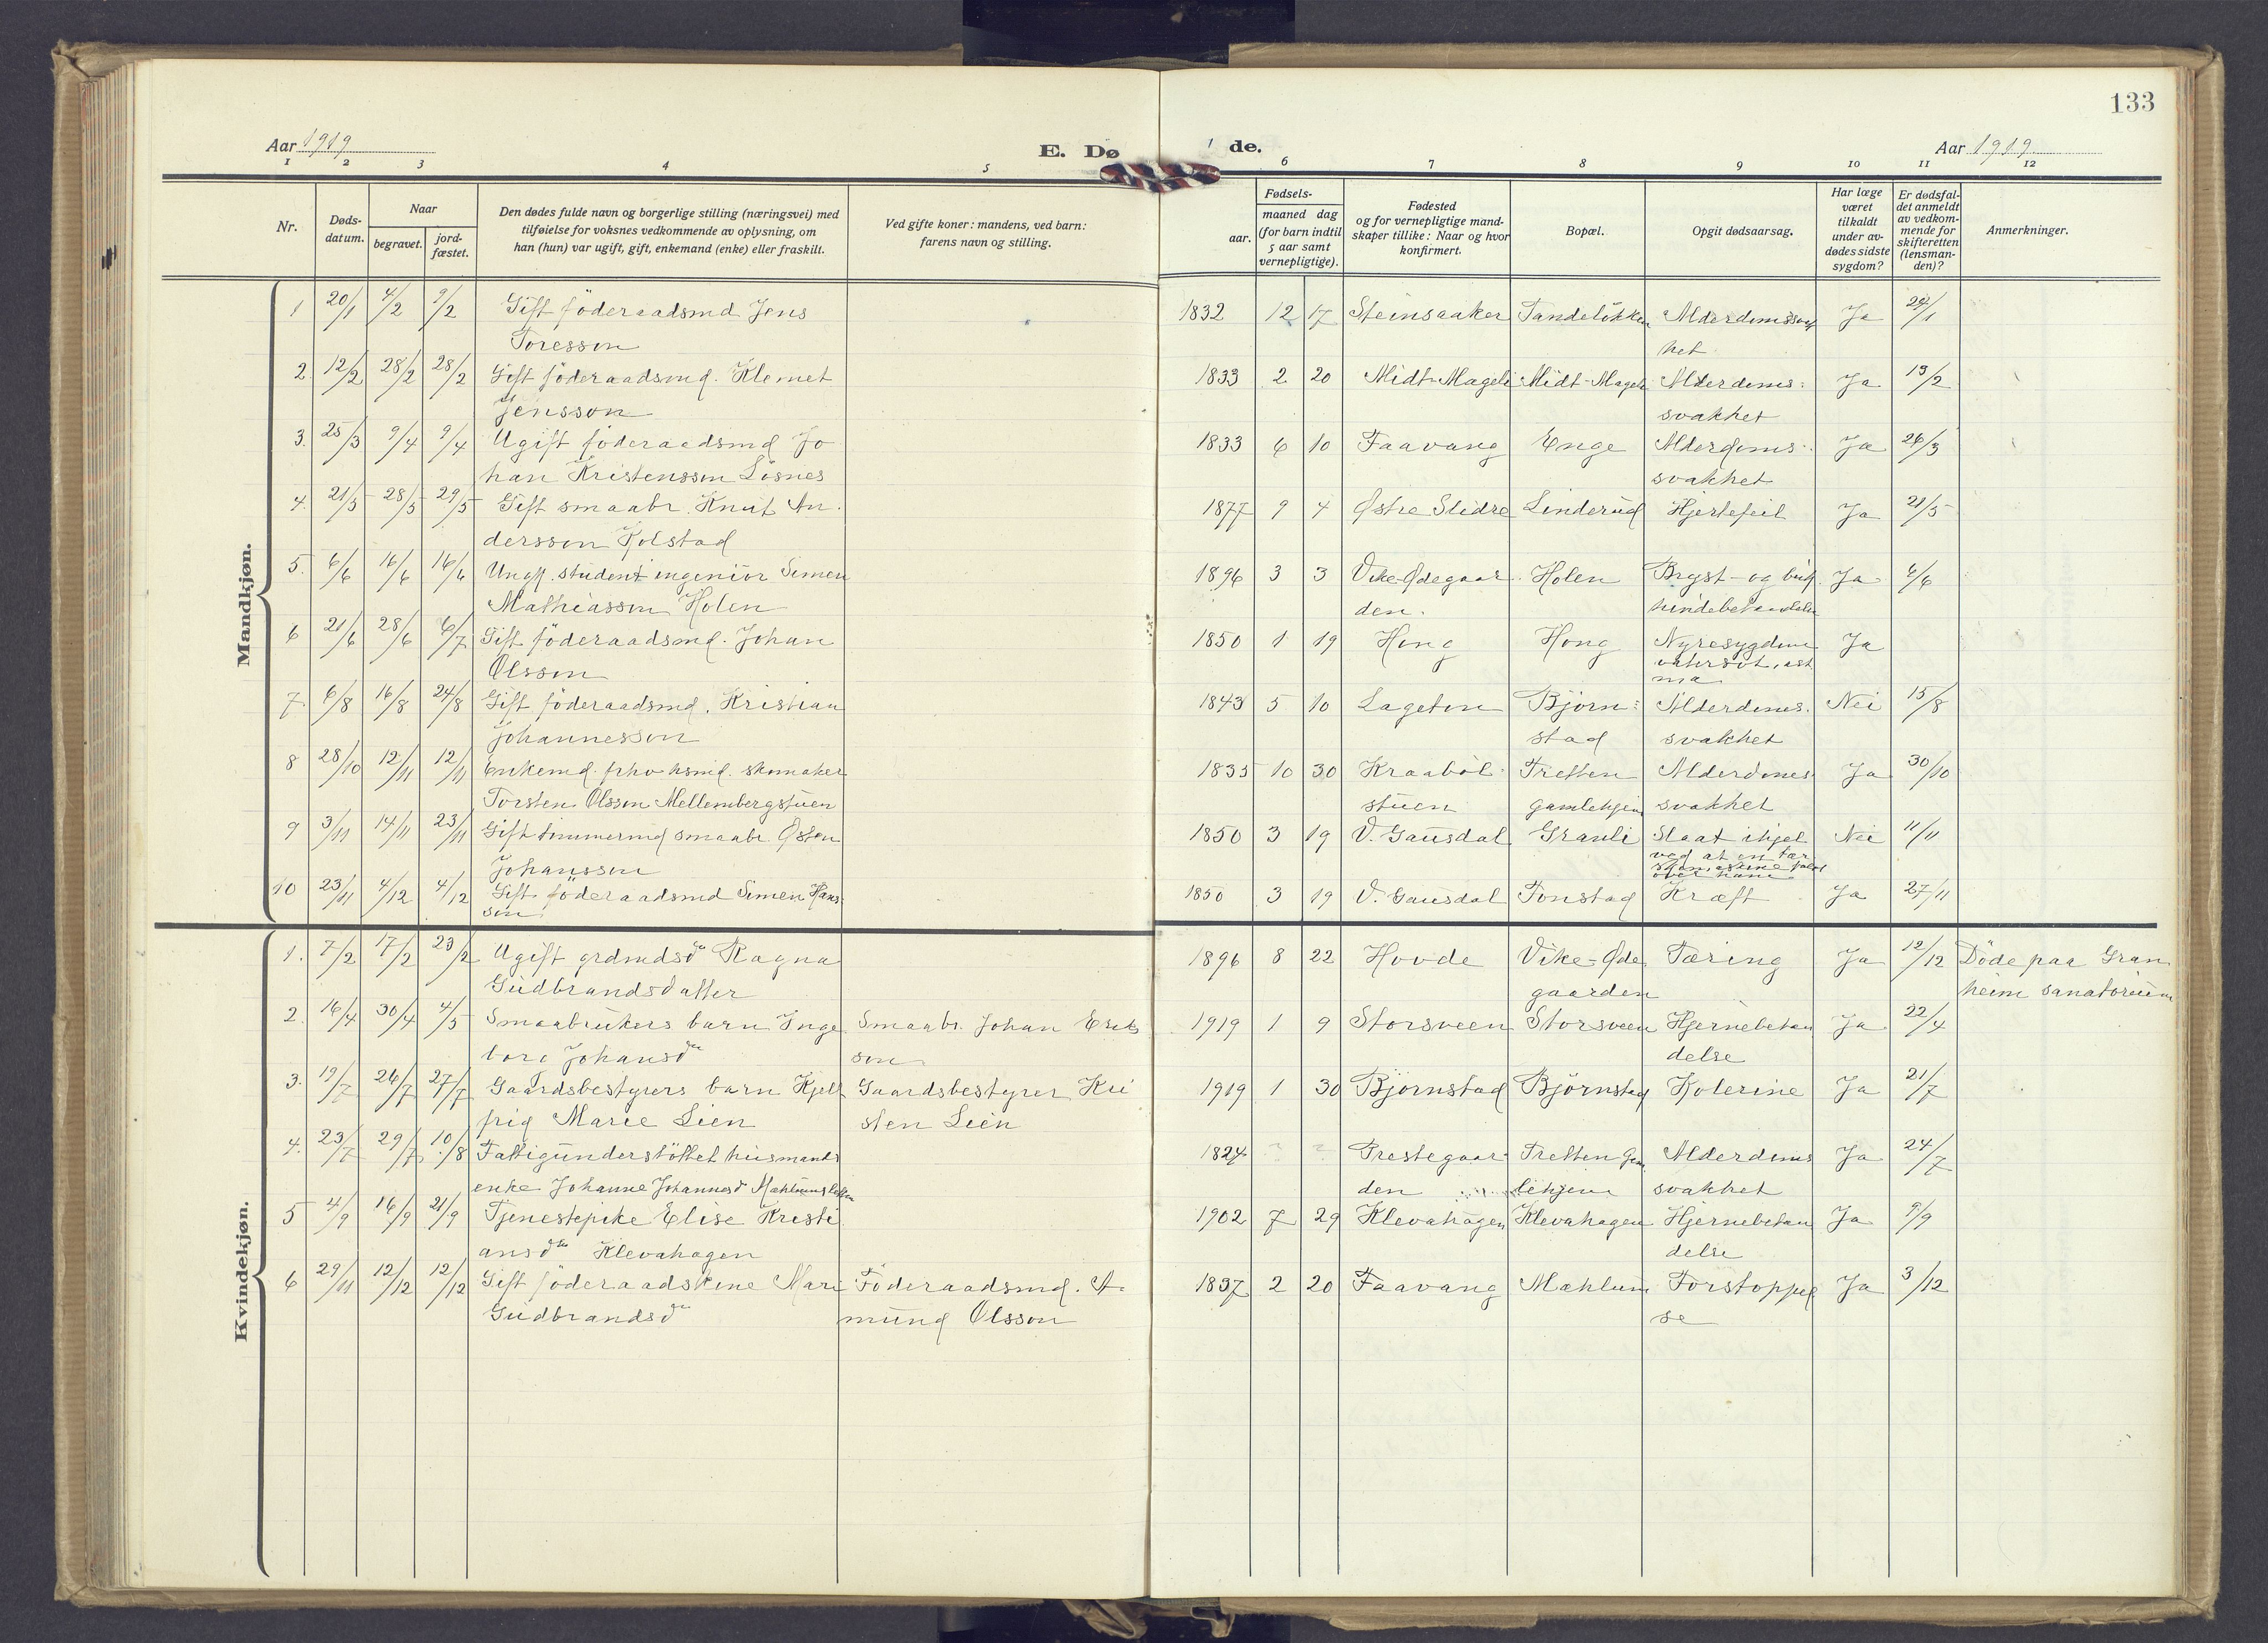 133
Aar 1919
E. Døde.
Aar 1919
1 2 3 4 5 6 7 8 9 10 11 12
Nr.
Døds-
datum.
Naar
begravet.
jord-
fæstet.
Den dødes fulde navn og borgerlige stilling (næringsvei) med
tilføielse for voksnes vedkommende av oplysning, om
han (hun) var ugift, gift, enkemand (enke) eller fraskilt.
Ved gifte koner: mandens, ved barn:
farens navn og stilling.
Fødsels-
aar.
maaned dag
(for barn indtil
5 aar samt
vernepligtige).
Fødested
og for vernepligtige mand-
skaper tillike: Naar og hvor
konfirmert.
Bopæl.
Opgit dødsaarsag.
Har læge
været
tilkaldt
under av-
dødes sidste
sygdom?
Er dødsfal-
det anmeldt
av vedkom-
mende for
skifteretten
(lensman-
den)?
Anmerkninger.
Mandkjøn.
1 20/1 4/2 9/2 Gift föderaadsmd Jens 1832 12 17 Steinsaaker Tandelökken Alderdomssvag Ja 24/1
Toresson het
2. 12/2 28/2 28/2 Gift föderaadsmd. Klemet 1833 2 20 Midt-Mageli Midt-Mageli Alderdoms- Ja 13/2
Jensson svakhet
3. 25/3 9/4 9/4 Ugift föderaadsmd Jo 1833 6 10 Faavang Enge Alderdoms- Ja 26/3
han Kristensson Lösnes svakhet
4. 21/5 28/5 29/5 Gift smaabr. Knut An- 1877 9 4 Østre Slidre Linderud Hjertefeil Ja 21/5
dersson Kolstad
5. 6/6 16/6 16/6 Ungk. student ingeniör Simen 1896 3 3 Vike-Ødegaar- Holen Bryst- og bug Ja 6/6
Mathiasson Holen den. hindebetændelse
6 21/6 28/6 6/7 Gift föderaadsmd. Johan 1850 1 19 Hong Hong Nyresygdom Ja
Olsson vatersot, ast
ma
7. 6/8 16/8 24/8 Gift föderaadsmd. Kristian 1843 5 10 Lageton Björn- Alderdoms- Nei 15/8
Johannesson stad svakhet
8 28/10 12/11 12/11 Enkemd. skomaker 1835 10 30 Kraaböl- Tretten Alderdoms Ja 30/10
Torsten Olsson Mellembergstuen stuen gamlehjem svakhet
9 3/11 14/11 23/11 Gift tømmermd smaabr. Østen 1850 3 19 V. Gausdal Granli Slaat ihjel Nei 11/11
Johansson ved at en tær
skemaskine faldt
over ham
10 23/11 4/12 4/12 Gift föderaadsmd Simen Hans- 1850 3 19 V. Gausdal Fonstad Kræft Ja 27/11
son
Kvindekjøn.
1. 7/2 17/2 23/2 Ugift grdmdsdtr Ragna 1896 8 22 Hovde Vike-Øde Tæring Ja 12/12 Döde paa Gran
Gudbrandsdatter gaarden heim sanatorium
2. 16/4 30/4 4/5 Smaabrukers barn Inge Smaabr. Johan Eriks 1919 1 9 Storsveen Storsveen Hjernebetæn Ja 22/4
borg Johansdtr son delse
3. 19/7 26/7 27/7 Gaardsbestyrers barn Kjell Gaardsbestyrer Kri 1919 1 30 Björnstad Björnstad Kolerine Ja 21/7
frig Marie Lien sten Lien
4. 23/7 29/7 10/8 Fattigunderstöttet husmands 1824 ? ? Prestegaar Tretten gam Alderdoms Ja 24/7
enke Johanne Johannesd den lehjem svakhet
5 4/9 16/9 21/9 Tjenestepike Elise Kristi 1902 7 29 Klevahagen Klevahagen Hjernebetæn Ja 9/9
ansdtr Klevahagen delse
6 29/11 12/12 12/12 Gift föderaadskone Mari Föderaadsmd. A- 1837 2 20 Faavang Mæhlum Forstoppel Ja 3/12
Gudbrandsdtr mund Olsson se